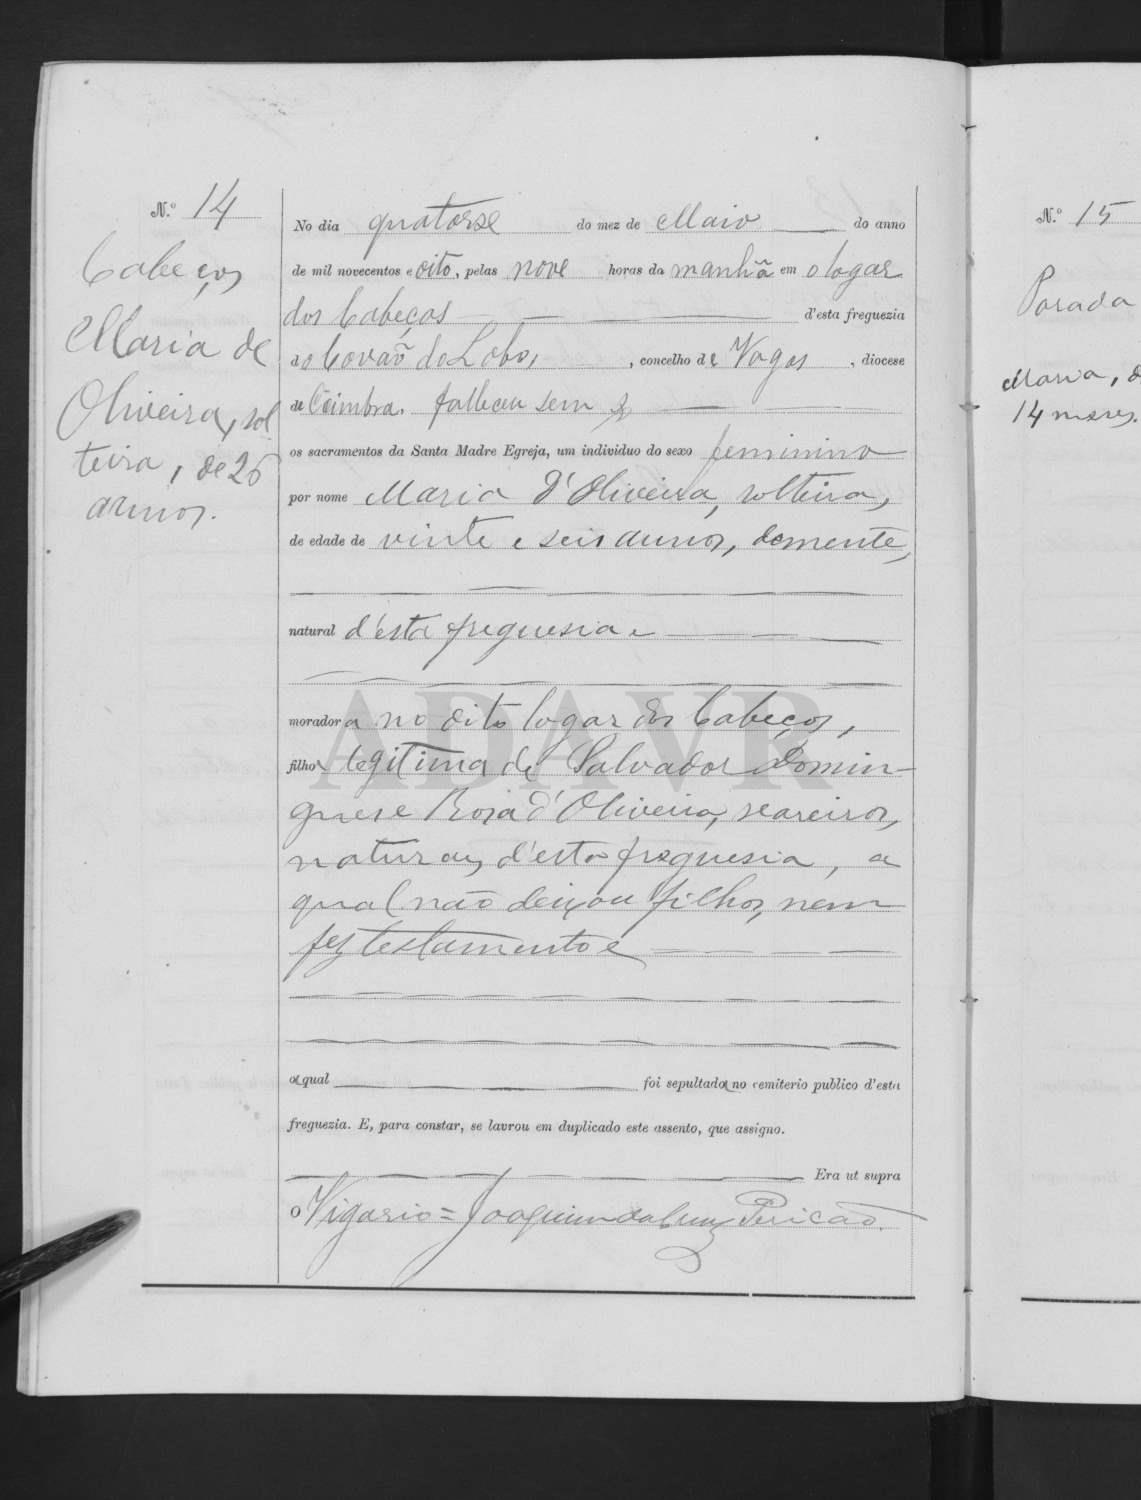 N.º 14
Cabeços
Maria de
Oliveira, sol
teira, de 26
annos.
No dia quatorse do mez de Maio do anno
de mil novecentos e oito, pelas nove horas da manhã em o logar
dos Cabeços d'esta freguezia
do Covão do Lobo, concelho de Vagos, diocese
de Coimbra. falleceu sem
os sacramentos da Santa Madre Egreja, um individuo do sexo feminino
por nome Maria d'Oliveira, solteira,
de edade de vinte e seis annos, demente,
natural d'esta freguesia e
moradora no dito logar dos Cabeços,
filha legitima de Salvador Domin-
gues e Rosa d'Oliveira, seareiros,
naturaes d'esta freguesia, a
qual não deixou filhos, nem
fez testamento e
ADAVR
a qual foi sepultada no cemiterio publico d'esta
freguezia. E, para constar, se lavrou em duplicado este assento, que assigno.
Era ut supra
O Vigario = Joaquim da Cruz Pericão.
N.º 15
Parada
Maria, d
14 meses.